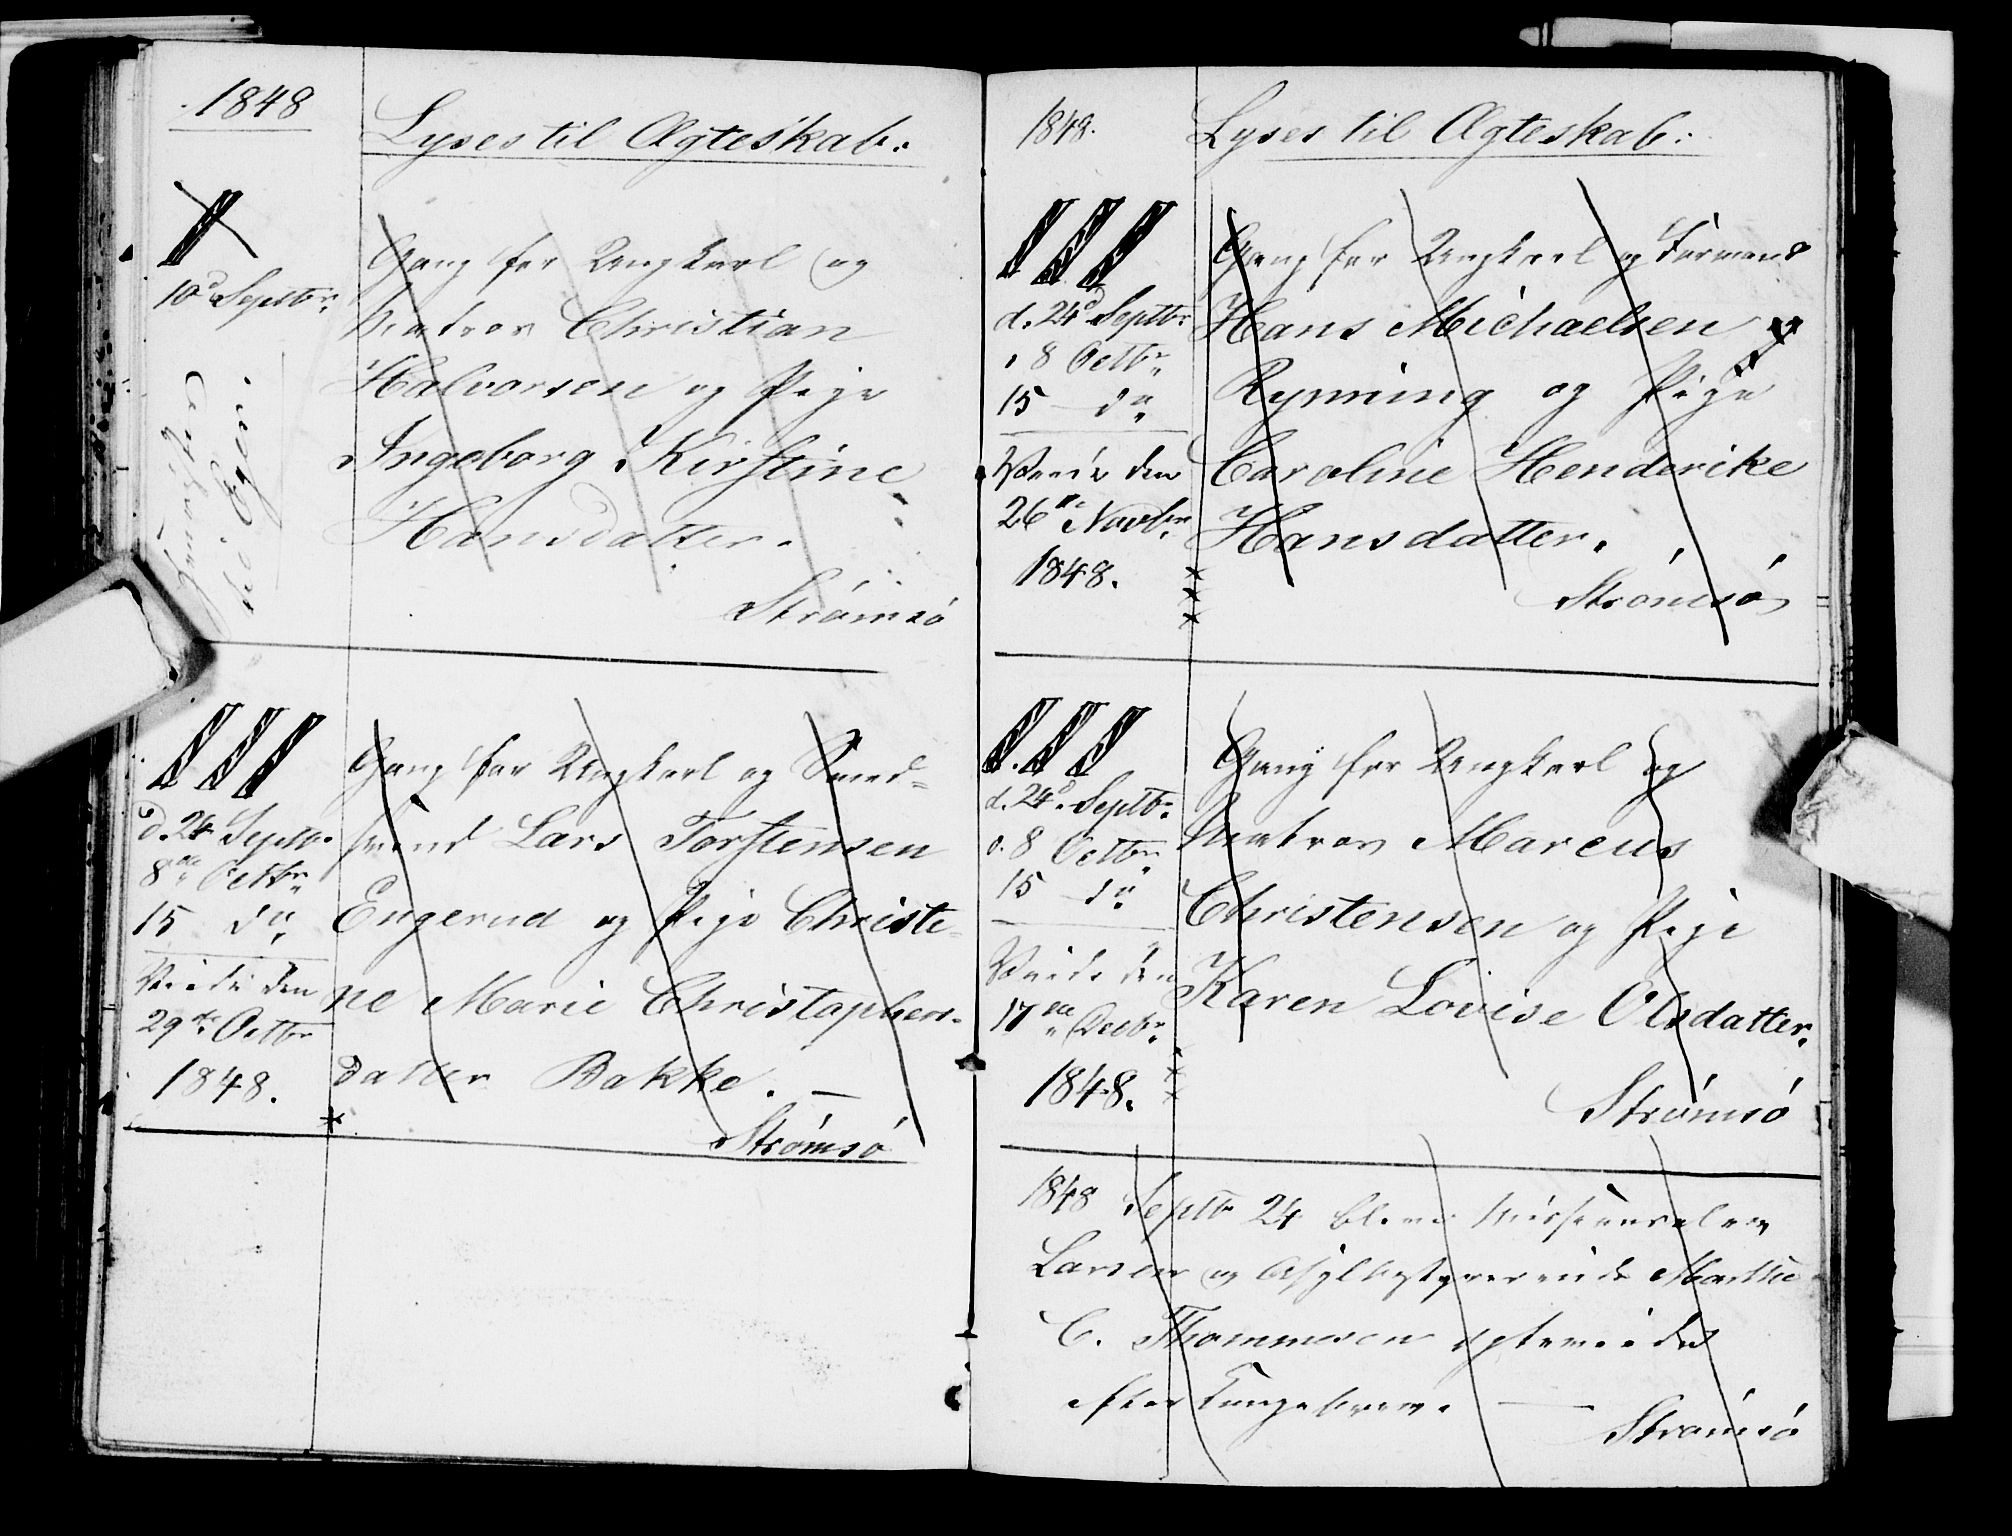 1848
Lyses til Ægteskab.
I
10d Septbr:
Gang for Ungkarl og
Matros Christian
Halvorsen og Pige
Ingeborg Kirstine
Hansdatter.
Strømsö
III
d. 24 Septbr.
8de Octbr.
15 do.
Viede den
29de Octbr.
1848.
Gang for Ungkarl og Smed=
svend Lars Torstensen
Engerud og Pige Christi-
ne Marie Christophers-
datter Bakke. —
Strömsö
1848.
Lyses til Ægteskab.
III
d. 24d Septbr.
8 Octbr.
15 — do.
Viede den
26de Novbr.
1848.
Gang for Ungkarl og Formand
Hans Michaelsen
Rynning og Pige
Caroline Henderike
Hansdatter.
Strömsö
III
d. 24d. Septbr.
d. 8 Octbr.
15 — do.
Viede den
17de Decbr.
1848.
Gang for Ungkarl og
Matros Marcus
Christensen og Pige
Karen Lovise Olsdatter.
Strömsö
1848 Septbr 24 bleve
Larsen og Asylbestyrerinde Marthe
C. Thommesen ægteviede
efter Kongebrev. —
Strömsö